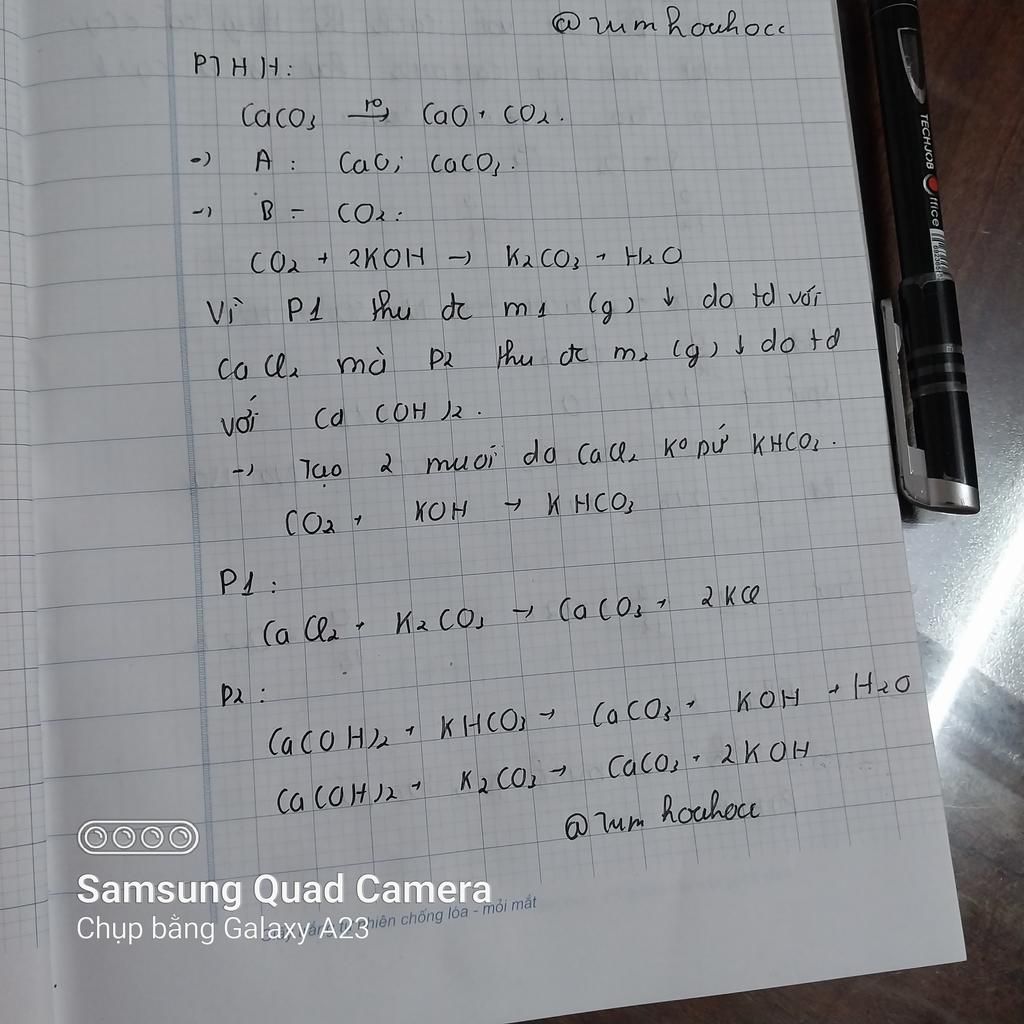 @zumhouhocc
PTHH:
CaCO3 t°→ CaO + CO2.
-) A : CaO; CaCO3.
-) B = CO2.
CO2 + 2KOH → K2CO3 + H2O
Vì P1 thu đc m1 (g) ↓ do td với
CaCl2 mà P2 thu đc m2 (g) ↓ do td
với Ca(OH)2.
-) Tạo 2 muối do CaCl2 ko pứ KHCO3.
CO2 + KOH → KHCO3
P1 :
CaCl2 + K2CO3 → CaCO3 + 2KCl
P2 :
Ca(OH)2 + KHCO3 → CaCO3 + KOH + H2O
Ca(OH)2 + K2CO3 → CaCO3 + 2KOH
@zum houhocc
Samsung Quad Camera
Chụp bằng Galaxy A23
nhiên chống lóa - mỏi mắt
TECHJOB Office